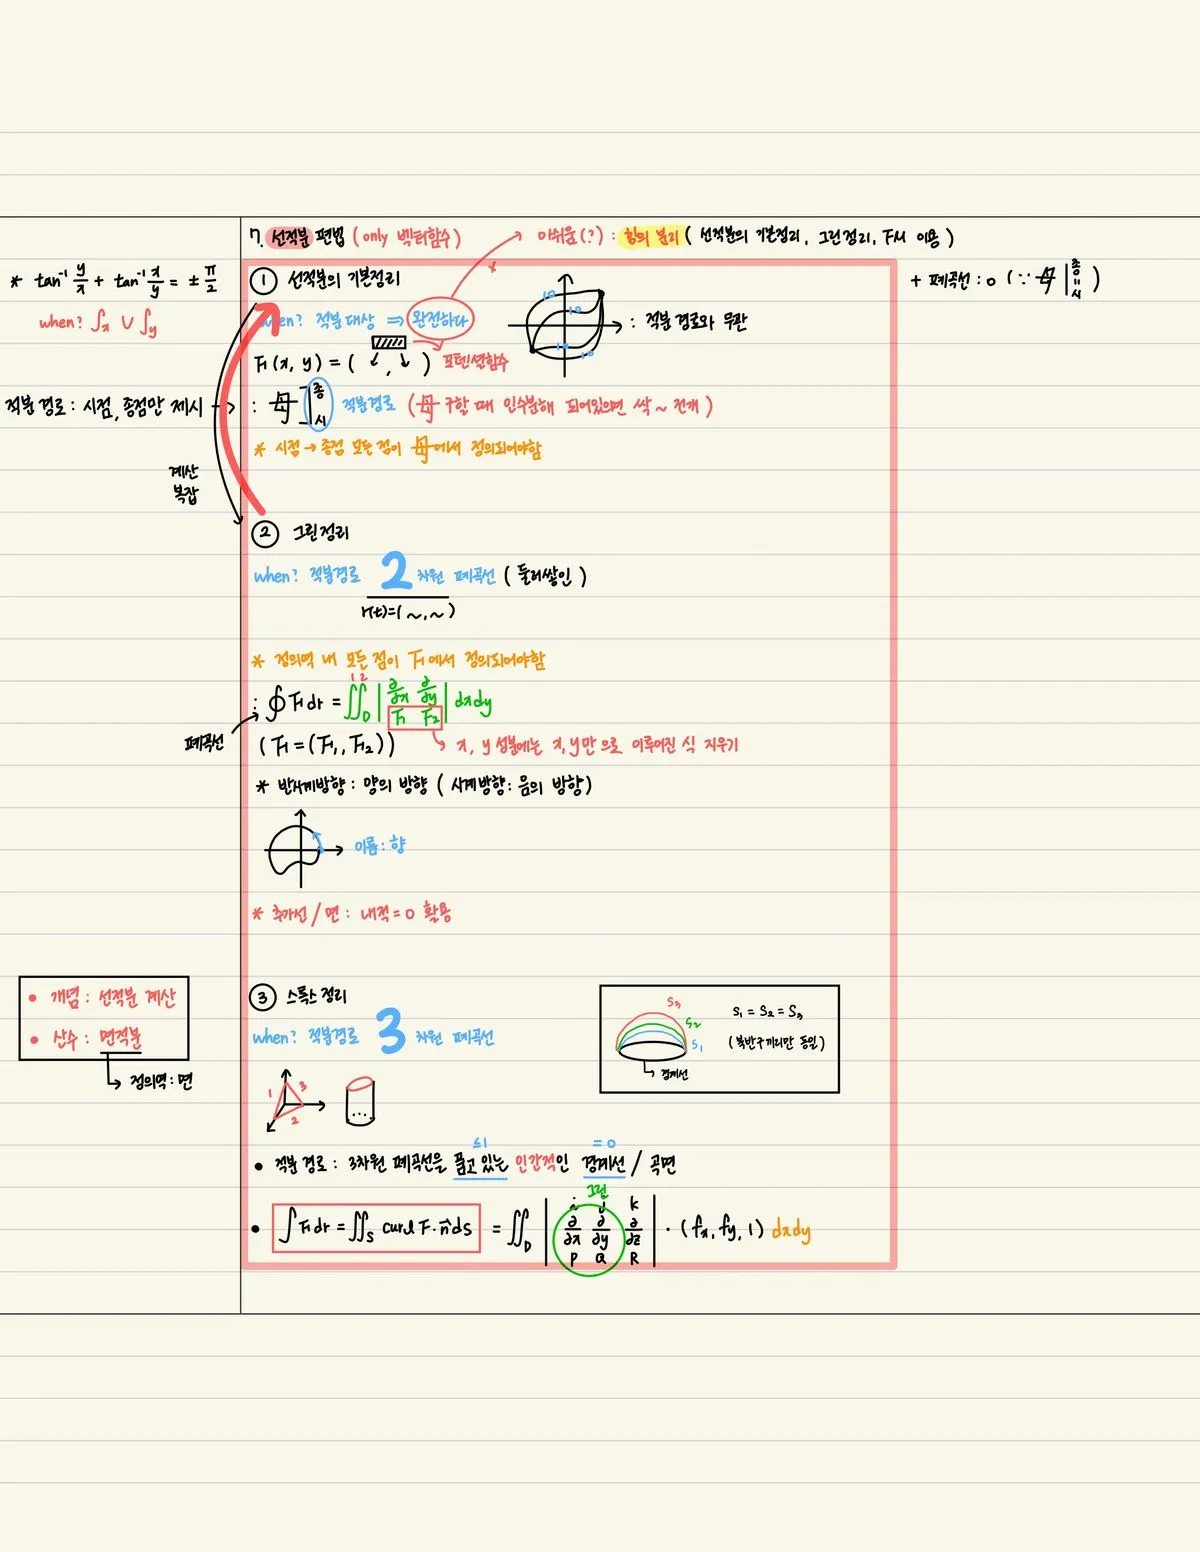 7. 선적분 편법 (only 벡터함수) → 아쉬움(?) : 항의 분리 ( 선적분의 기본정리, 그린정리, FM 이용 )
* tan⁻¹ y/x + tan⁻¹ x/y = ± π/2
when? ∫x ∪ ∫y
① 선적분의 기본정리
+ 폐곡선 : 0 ( ∵ 母 | 종 = 시 )
when? 적분대상 ⇒ 완전하다
x
10
10
10
10
: 적분 경로와 무관
F(x, y) = ( , ) 포텐셜함수
적분 경로 : 시점, 종점만 제시 →
: 母 ] 종 시 적분경로 (母 구할 때 인수분해 되어있으면 싹~전개 )
* 시점 → 종점 모든 점이 母에서 정의되어야함
계산
복잡
② 그린정리
when? 적분경로 2차원 폐곡선 ( 둘러쌓인 )
r(t)=( ~, ~ )
* 정의역 내 모든 점이 F에서 정의되어야함
1 2
: ∮ F dr = ∬D | ∂/∂x ∂/∂y F₁ F₂ | dxdy
폐곡선
( F = (F₁, F₂))
→ x, y 성분에는 x, y만으로 이루어진 식 지우기
* 반시계방향 : 양의 방향 ( 시계방향 : 음의 방향)
이름 : 향
* 추가선 / 면 : 내적 = 0 활용
• 개념 : 선적분 계산
• 산수 : 면적분
→ 정의역 : 면
③ 스톡스 정리
when? 적분경로 3차원 폐곡선
S₃
S₂
S₁
경계선
S₁ = S₂ = S₃
(북반구끼리만 동일)
1
2
3
≤1
= 0
• 적분 경로 : 3차원 폐곡선을 품고 있는 인간적인 경계선 / 곡면
그린
• ∫ F dr = ∬S curl F · n ds = ∬D | i j k ∂/∂x ∂/∂y ∂/∂z P Q R | · (fx, fy, 1) dxdy